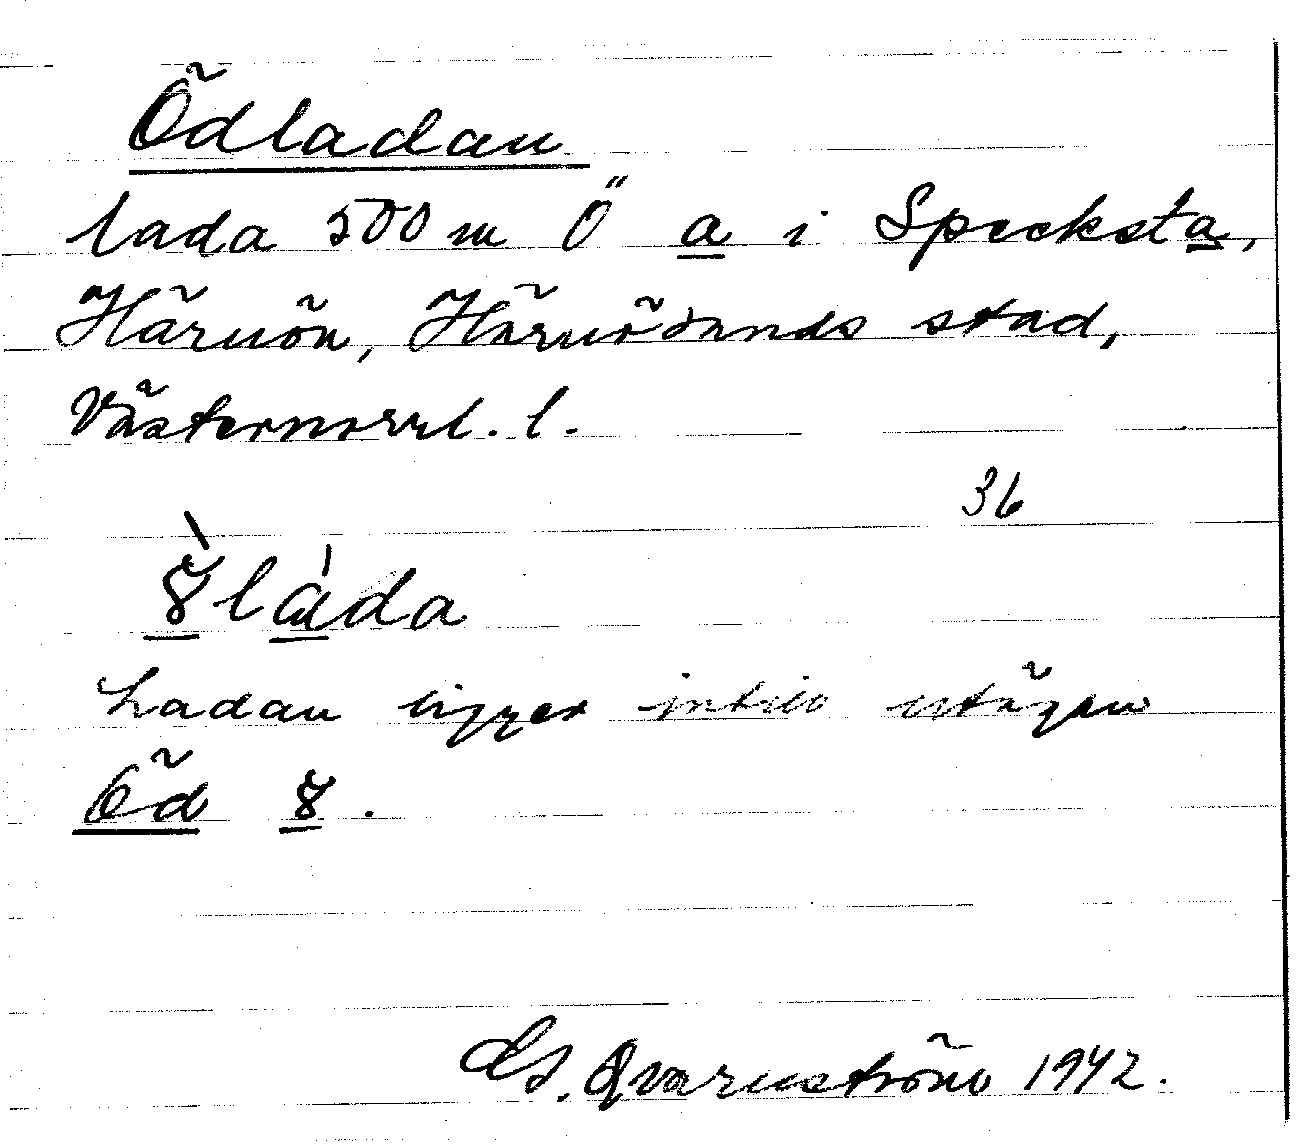 Ödladan
lada 500 m Ö a i Specksta,
Härnön, Härnösands stad,
Västernorrl. l.
36
Ladan ligger intill utägan
Öd 8.
Qvarnström 1942.